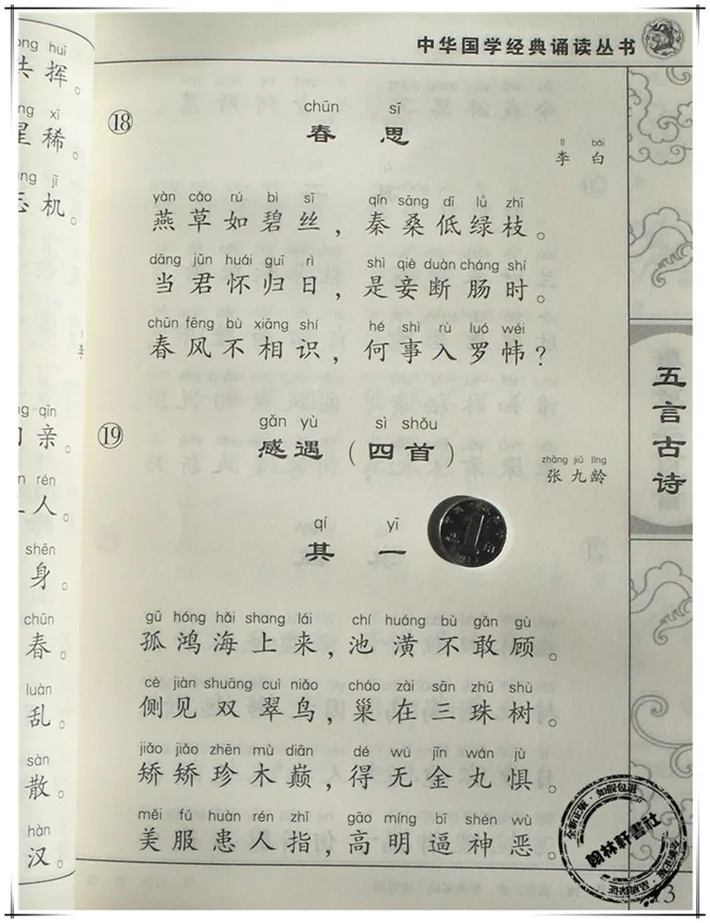 中华国学经典诵读丛书
ong huī
共挥。
ng xī
星稀。
ng jī
忘机。
ng qīn
亲。
n rén
人。
shēn
身。
chūn
春。
luàn
乱。
sàn
散。
hàn
汉。
⑱
chūn sī
春思
lǐ bái
李白
yàn cǎo rú bì sī qín sāng dī lǜ zhī
燕草如碧丝，秦桑低绿枝。
dāng jūn huái guī rì shì qiè duàn cháng shí
当君怀归日，是妾断肠时。
chūn fēng bù xiāng shí hé shì rù luó wéi
春风不相识，何事入罗帏？
⑲
gǎn yù sì shǒu
感遇（四首）
zhāng jiǔ líng
张九龄
qí yī
其一
1
gū hóng hǎi shang lái chí huáng bù gǎn gù
孤鸿海上来，池潢不敢顾。
cè jiàn shuāng cuì niǎo cháo zài sān zhū shù
侧见双翠鸟，巢在三珠树。
jiǎo jiǎo zhēn mù diān dé wú jīn wán jù
矫矫珍木巅，得无金丸惧。
měi fú huàn rén zhǐ gāo míng bī shén wù
美服患人指，高明逼神恶。
五言古诗
全新正版·如假包退
翰林轩书社
全新正版·品质保证
13